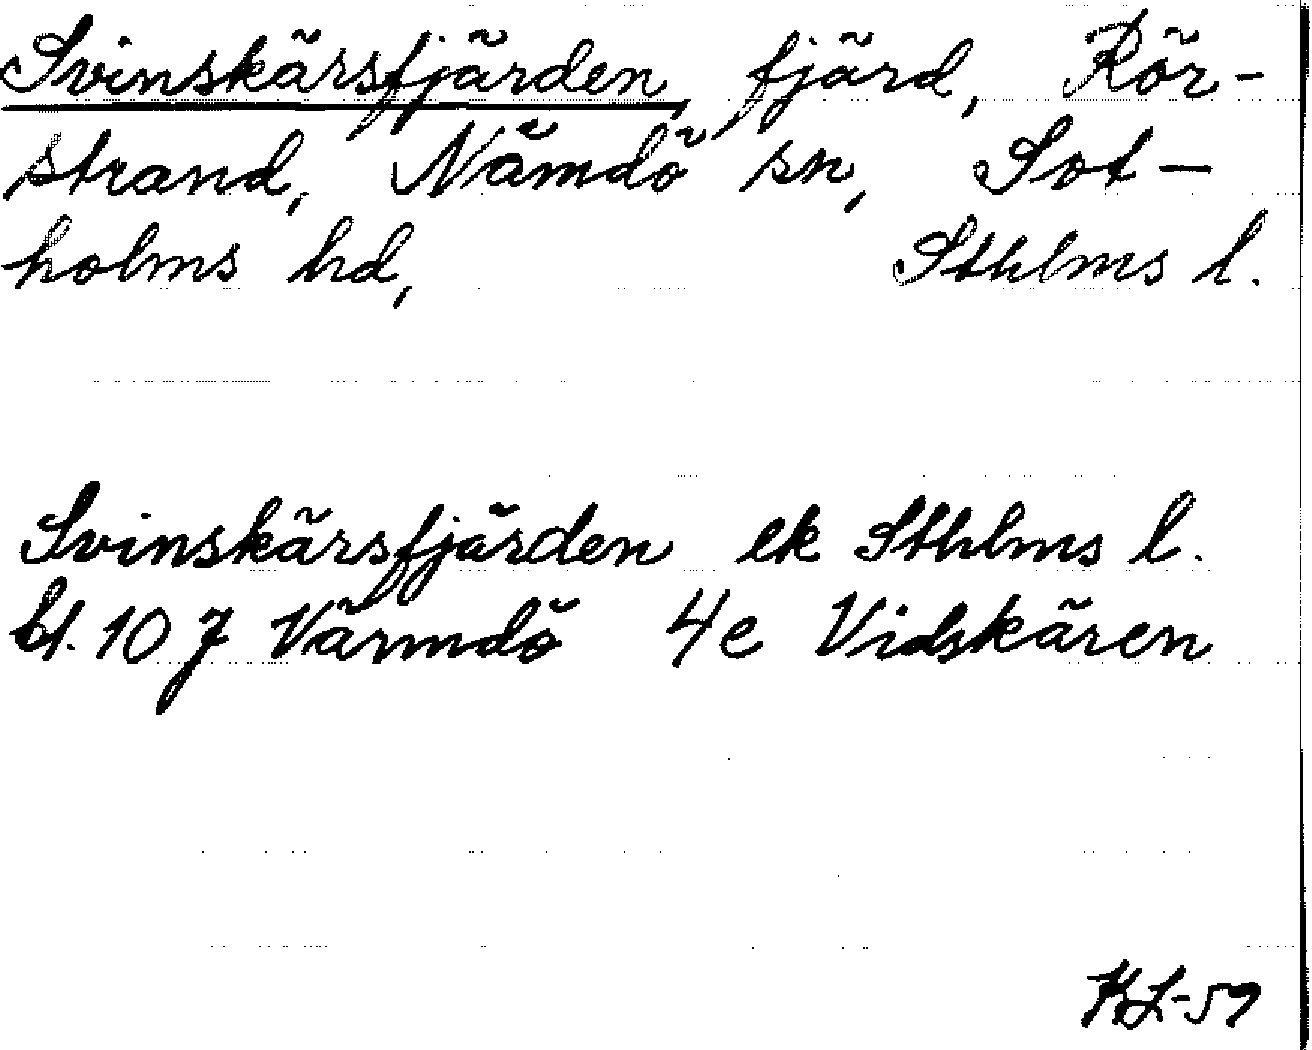 Svinskärsfjärden, fjärd, Rör-
strand, Nämdö sn, Sot-
holms hd, Sthlms l.
Svinskärsfjärden ek Sthlms l.
bl. 107 Värmdö 4e Vidskären
KL-57